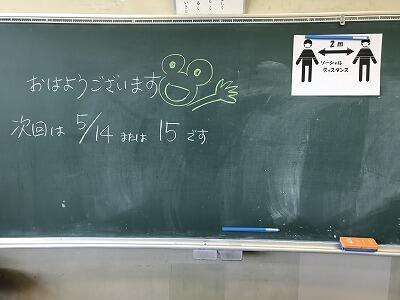 おはようございます
次回は 5/14 または 15 です
2m
ソーシャル
ディスタンス